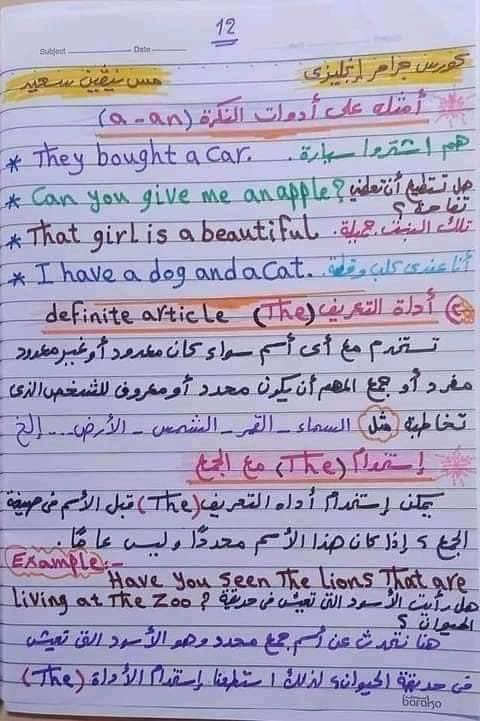 12
Subject Date
كورس جرامر إنجليزى
مس نيفين سعيد
أمثله على أدوات النكرة (a - an)
* They bought a car. هم اشتروا سيارة.
* Can you give me an apple? هل تستطيع أن تعطني
تفاحة؟
* That girl is a beautiful. تلك البنت جميلة.
* I have a dog and a cat. أنا عندى كلب وقطة
أداة التعريف (The) definite article
تستخدم مع أى أسم سواء كان معدود أو غير معدود
مفرد أو جمع المهم أن يكون محدد أو معروف للشخص الذى
تخاطبة مثل السماء - القمر - الشمس - الأرض .... إلخ
إستخدام (The) مع الجمع
يمكن إستخدام أداه التعريف (The) قبل الأسم فى صيغة
الجمع ؟ إذا كان هذا الأسم محددًا وليس عامًا.
Example:-
Have you seen The Lions That are
living at The Zoo? هل رأيت الأسود التى تعيش فى حديقة
الحيوان؟
هنا نتحدث عن أسم جمع محدد وهو الأسود التى تعيش
فى حديقة الحيوان؟ لذلك استطعنا إستخدام الأداة (The)
barako